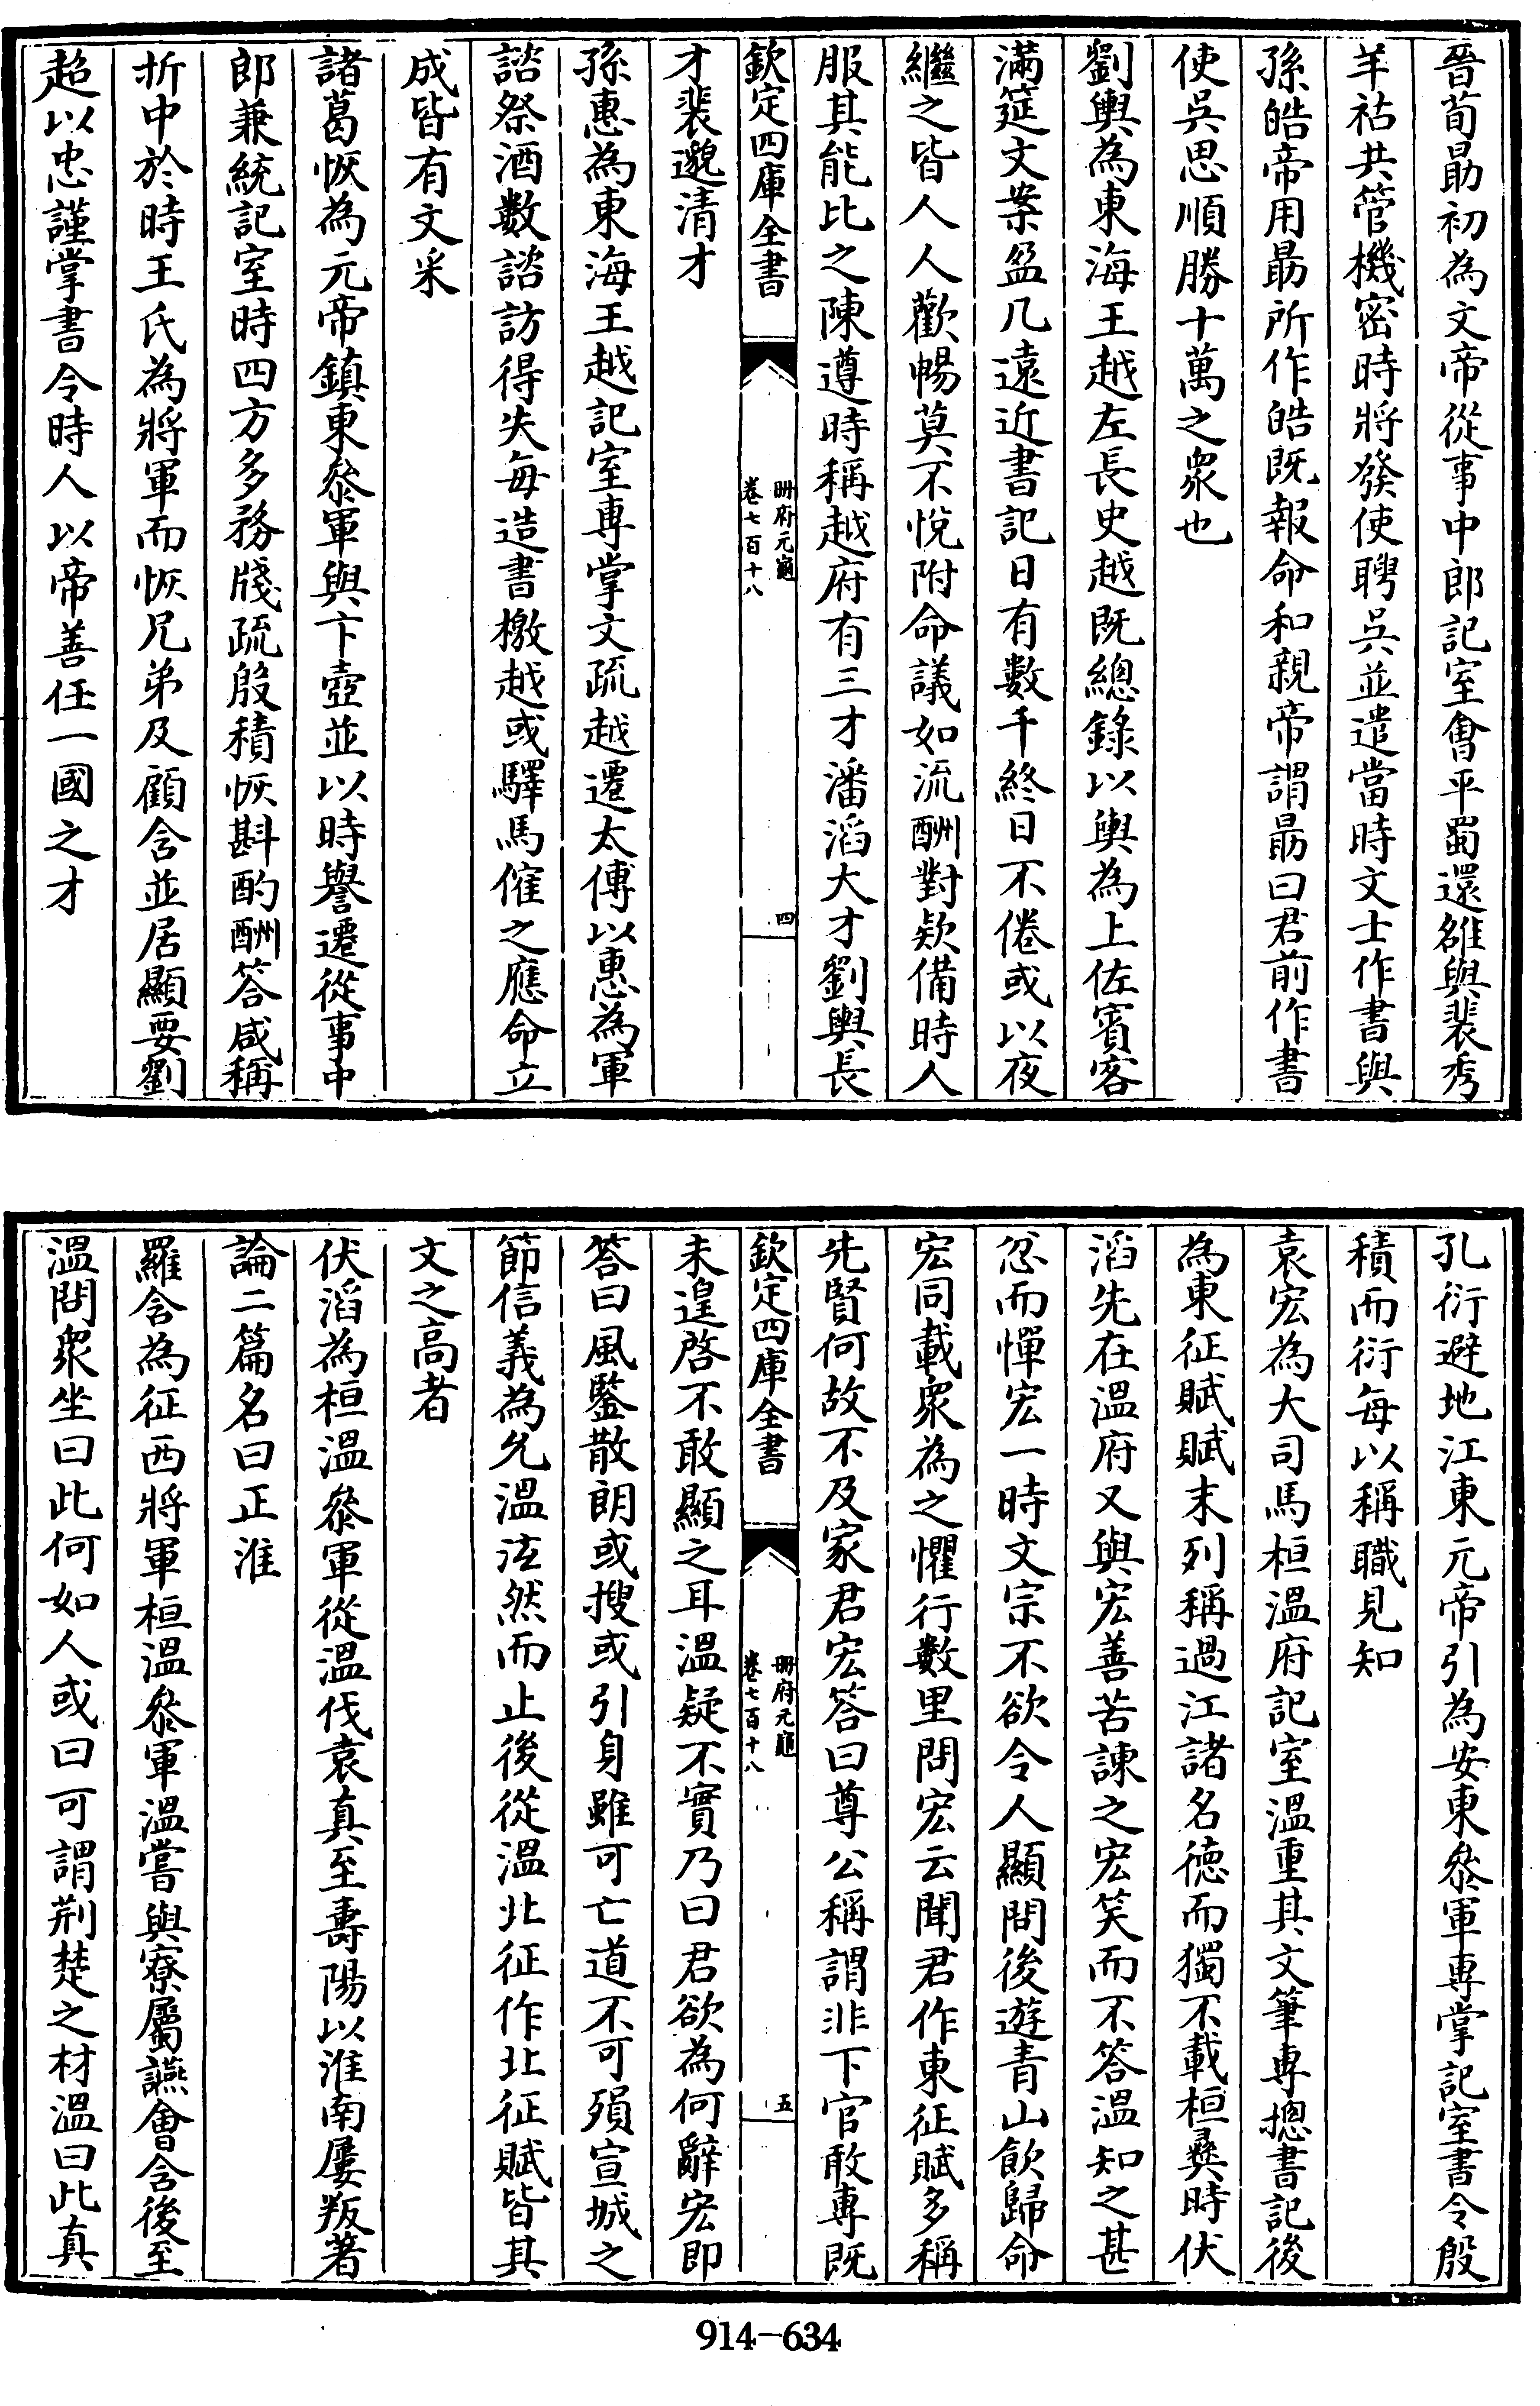 晉荀勗初為文帝從事中郎記室會平蜀還雒與裴秀
羊祜共管機密時將發使聘吳並遣當時文士作書與
孫皓帝用勗所作皓既報命和親帝謂勗曰君前作書
使吳思順勝十萬之衆也
劉輿為東海王越左長史越既總錄以輿為上佐賓客
滿筵文案盈几遠近書記日有數千終日不倦或以夜
繼之皆人人歡暢莫不悅附命議如流酬對欵備時人
服其能比之陳遵時稱越府有三才潘滔大才劉輿長
欽定四庫全書
冊府元龜
卷七百十八
四
才裴邈清才
孫惠為東海王越記室專掌文疏越遷太傅以惠為軍
諮祭酒數諮訪得失每造書檄越或驛馬催之應命立
成皆有文采
諸葛恢為元帝鎮東叅軍與卞壺並以時譽遷從事中
郎兼統記室時四方多務牋疏殷積恢斟酌酬答咸稱
折中於時王氏為將軍而恢兄弟及顧含並居顯要劉
超以忠謹掌書令時人以帝善任一國之才
孔衍避地江東元帝引為安東叅軍專掌記室書令殷
積而衍每以稱職見知
袁宏為大司馬桓溫府記室溫重其文筆專摠書記後
為東征賦賦末列稱過江諸名德而獨不載桓彝時伏
滔先在溫府又與宏善苦諫之宏笑而不答溫知之甚
忿而憚宏一時文宗不欲令人顯問後遊青山飲歸命
宏同載衆為之懼行數里問宏云聞君作東征賦多稱
先賢何故不及家君宏答曰尊公稱謂非下官敢專既
欽定四庫全書
冊府元龜
卷七百十八
五
未遑啓不敢顯之耳溫疑不實乃曰君欲為何辭宏即
答曰風鑒散朗或搜或引身雖可亡道不可殞宣城之
節信義為允溫泫然而止後從溫北征作北征賦皆其
文之高者
伏滔為桓溫叅軍從溫伐袁真至壽陽以淮南屢叛著
論二篇名曰正淮
羅含為征西將軍桓溫叅軍溫嘗與寮屬讌會含後至
溫問衆坐曰此何如人或曰可謂荆楚之材溫曰此真
914-634